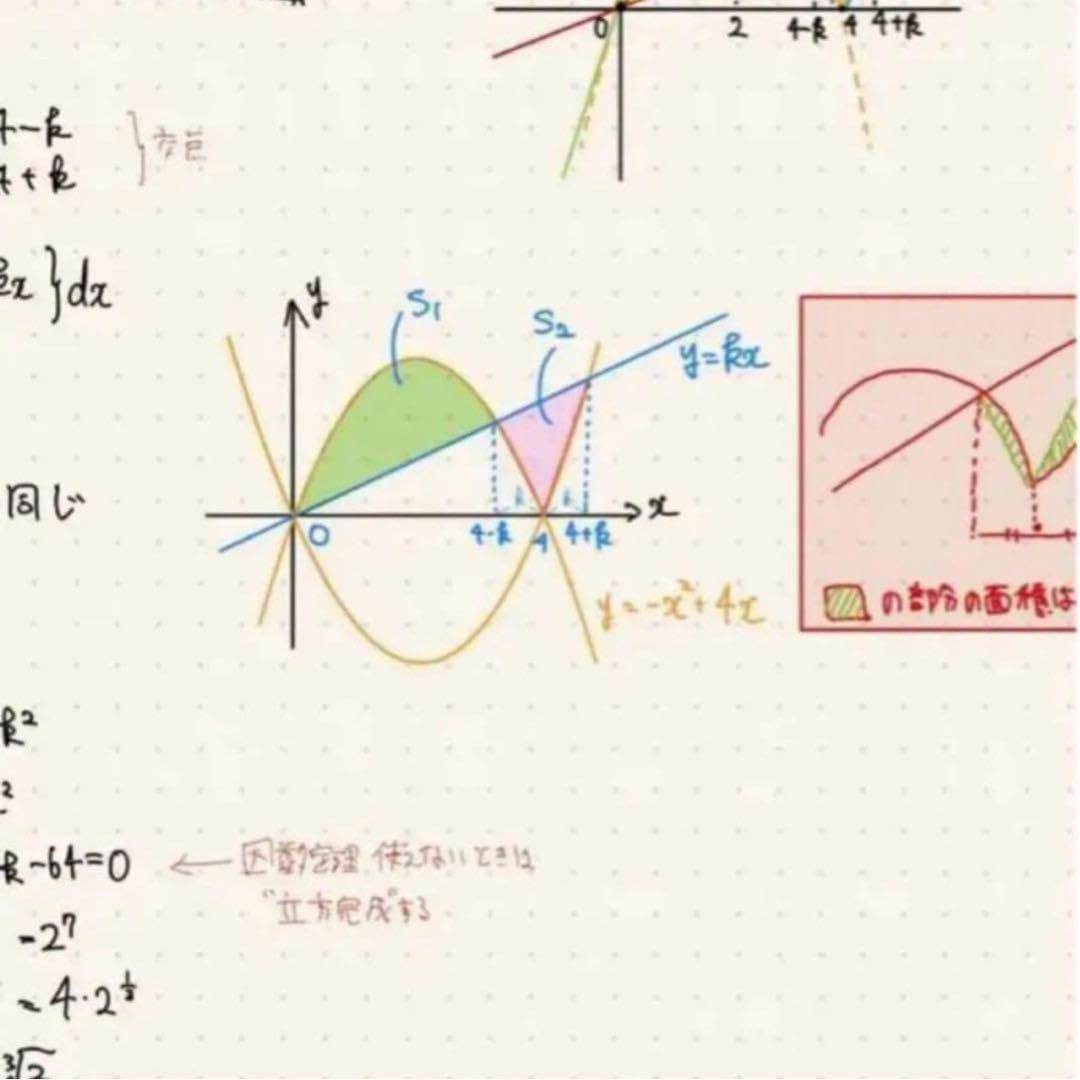 0 2 4-k 4 4+k
4-k
4+k
} 交点
kx}dx
y
S₁
S₂
y=kx
同じ
x
0 4-k 4 4+k
k k
y=-x²+4x
の部分の面積は
k²
²
k-64=0 ← 因数定理 使えないときは
"立方完成"する
-2⁷
=4·2^⅓
³√2